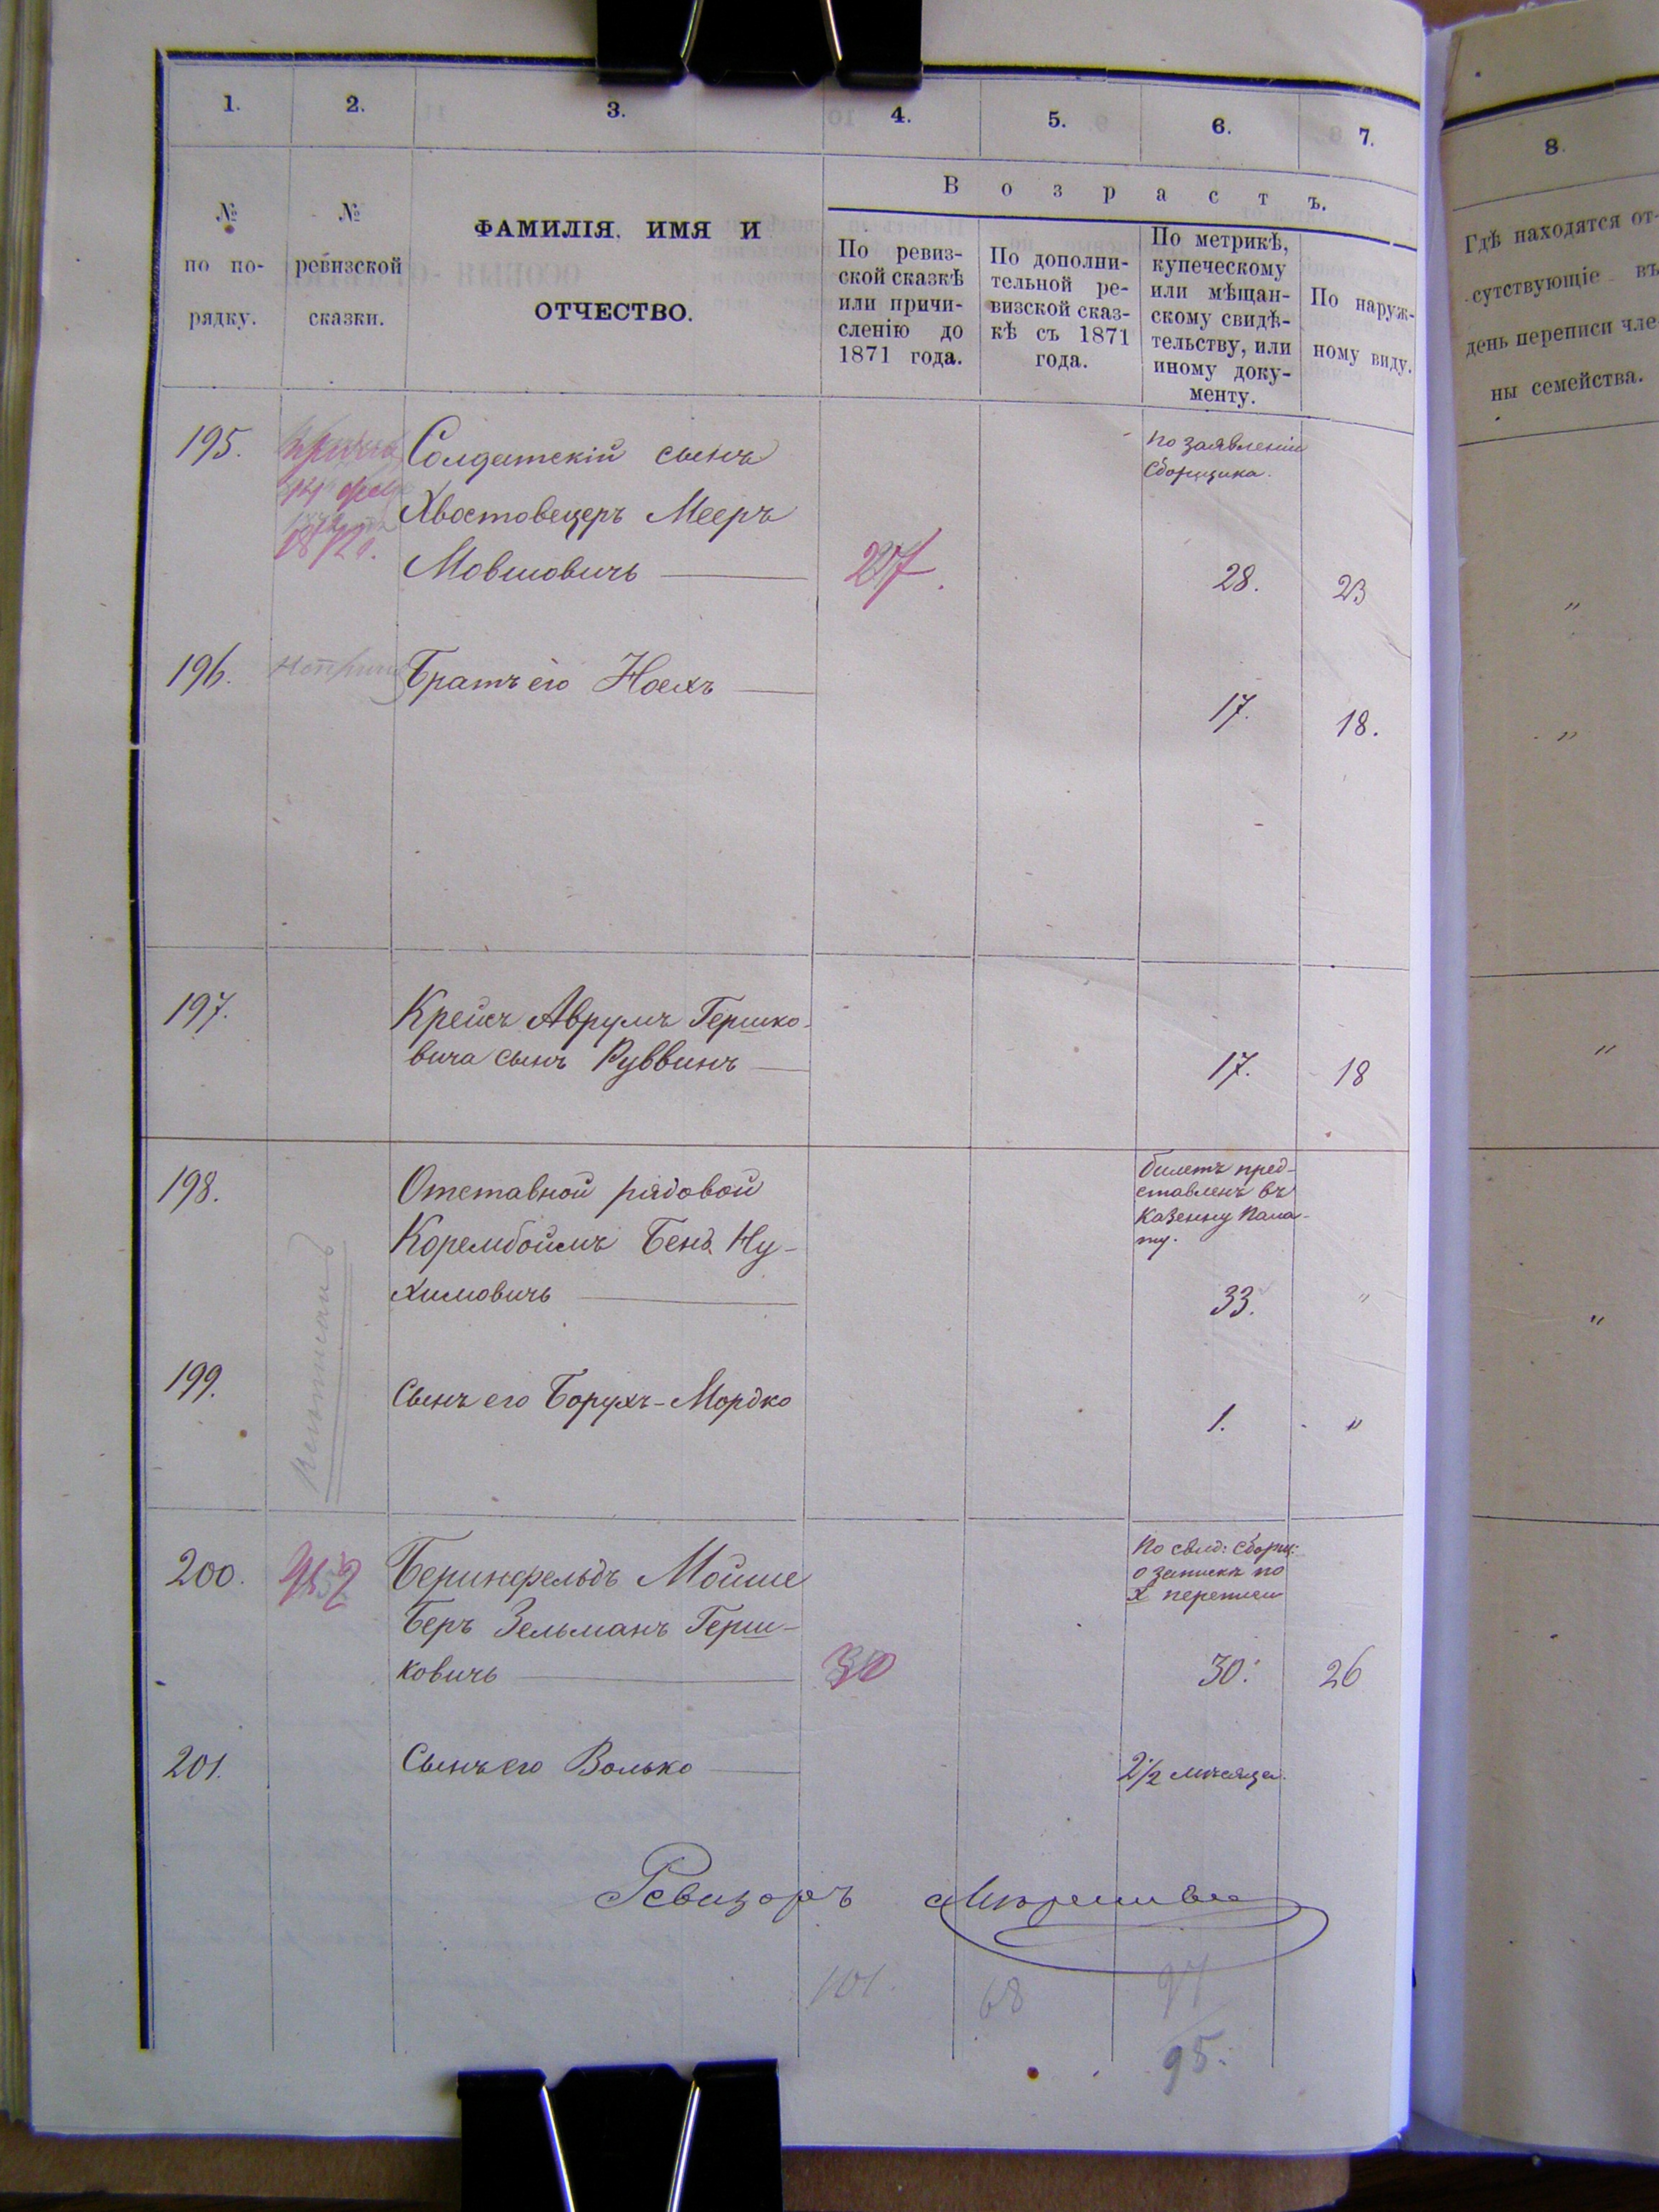 1. 2. 3. 4. 5. 6. 7.
№ по по-рядку.
№ ревизской сказки.
ФАМИЛІЯ, ИМЯ И
ОТЧЕСТВО.
Возрастъ.
По ревиз-
ской сказкѣ
или причи-
сленію до
1871 года.
По дополни-
тельной ре-
визской сказ-
кѣ съ 1871
года.
По метрикѣ,
купеческому
или мѣщан-
скому свидѣ-
тельству, или
иному доку-
менту.
По наруж-
ному виду.
195.
Солдатскій сынъ
Хвостовецеръ Мееръ
Мовшовичь
27.
по заявленію
Сборщика.
28.
23
196.
Братъ его Ноехъ
17.
18.
197.
Крейсъ Аврумъ Гершко-
вича сынъ Руввинъ
17.
18
198.
Отставной рядовой
Корембоймъ Бенъ Ну-
химовичь
билетъ пред-
ставленъ въ
Казенну Пала-
ту.
33.
"
199.
Сынъ его Борухъ-Мордко
1.
"
200.
Беринфельдъ Мойше
Беръ Зельманъ Герш-
ковичь
30
По свид: сборщ:
о запискѣ по
X переписи
30.
26
201.
Сынъ его Волько
2 1/2 мѣсяца.
Ревизоръ
101.
68
97
95.
8.
Гдѣ находятся от-
сутствующіе въ
день переписи чле
ны семейства.
"
"
"
"